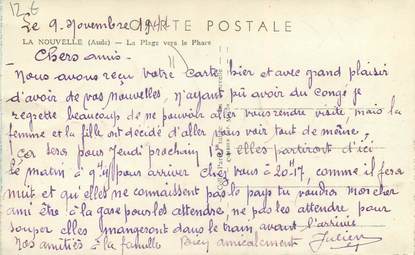 12-6
Le 9. Novembre 19
CARTE POSTALE
LA NOUVELLE (Aude) — La Plage vers le Phare
Chers amis —
Nous avons reçu votre carte hier et avec grand plaisir
d'avoir de vos nouvelles, n'ayant pû avoir du congé je
regrette beaucoup de ne pouvoir aller vous rendre visite, mais la
femme et la fille ont décidé d'aller vous voir tout de même,
ça sera pour Jeudi prochain 13 elles partiront d'ici
le matin à pour arriver chez vous à 20-17, comme il fera
nuit et qu'elles ne connaissent pas le pays tu voudras mon cher
ami être à la gare pour les attendre, ne pas les attendre pour
souper elles mangeront dans le train, avant l'arrivée
Nos amitiés à la famille Bien amicalement Julien